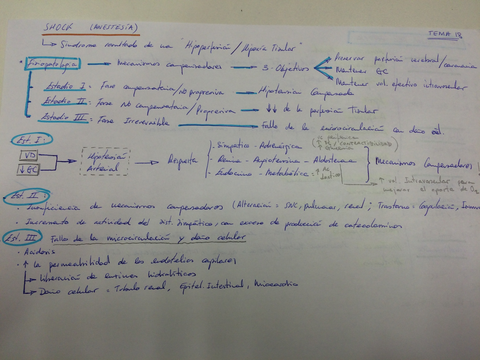 SHOCK (ANESTESIA)
TEMA 18
↳ Síndrome constituido de una "Hipoperfusión / Hipoxia Tisular"
Fisiopatología → Mecanismos compensadores → 3 Objetivos → Preservar perfusión cerebral/coronaria
Mantener GC
Mantener vol. efectivo intravascular
Estadio I: Fase compensatoria/no progresiva → Hipotensión Compensada
Estadio II: Fase no compensatoria/Progresiva → ↓↓ de la perfusión Tisular
Estadio III: Fase Irreversible → Fallo de la microcirculación con daño cel.
Est. I:
VD
↓GC
Hipotensión Arterial
Respuesta
. Simpático - Adrenérgica
. Renina - Angiotensina - Aldosterona
. Endocrino - Metabólica
Mecanismos Compensadores
↑ vol. Intravascular para mejorar el aporte de O2
Est. II:
Insuficiencia de mecanismos compensadores (Alteración: SNC, pulmonar, renal; Trastorno: Coagulación,
Incremento de actividad del Sist. Simpático, con exceso de producción de catecolaminas.
Est. III Fallo de la microcirculación y daño celular
- Acidosis
- ↑ la permeabilidad de los endotelios capilares
→ Liberación de enzimas hidrolíticos
→ Daño celular = Túbulo renal, Epitel. Intestinal, Miocardio